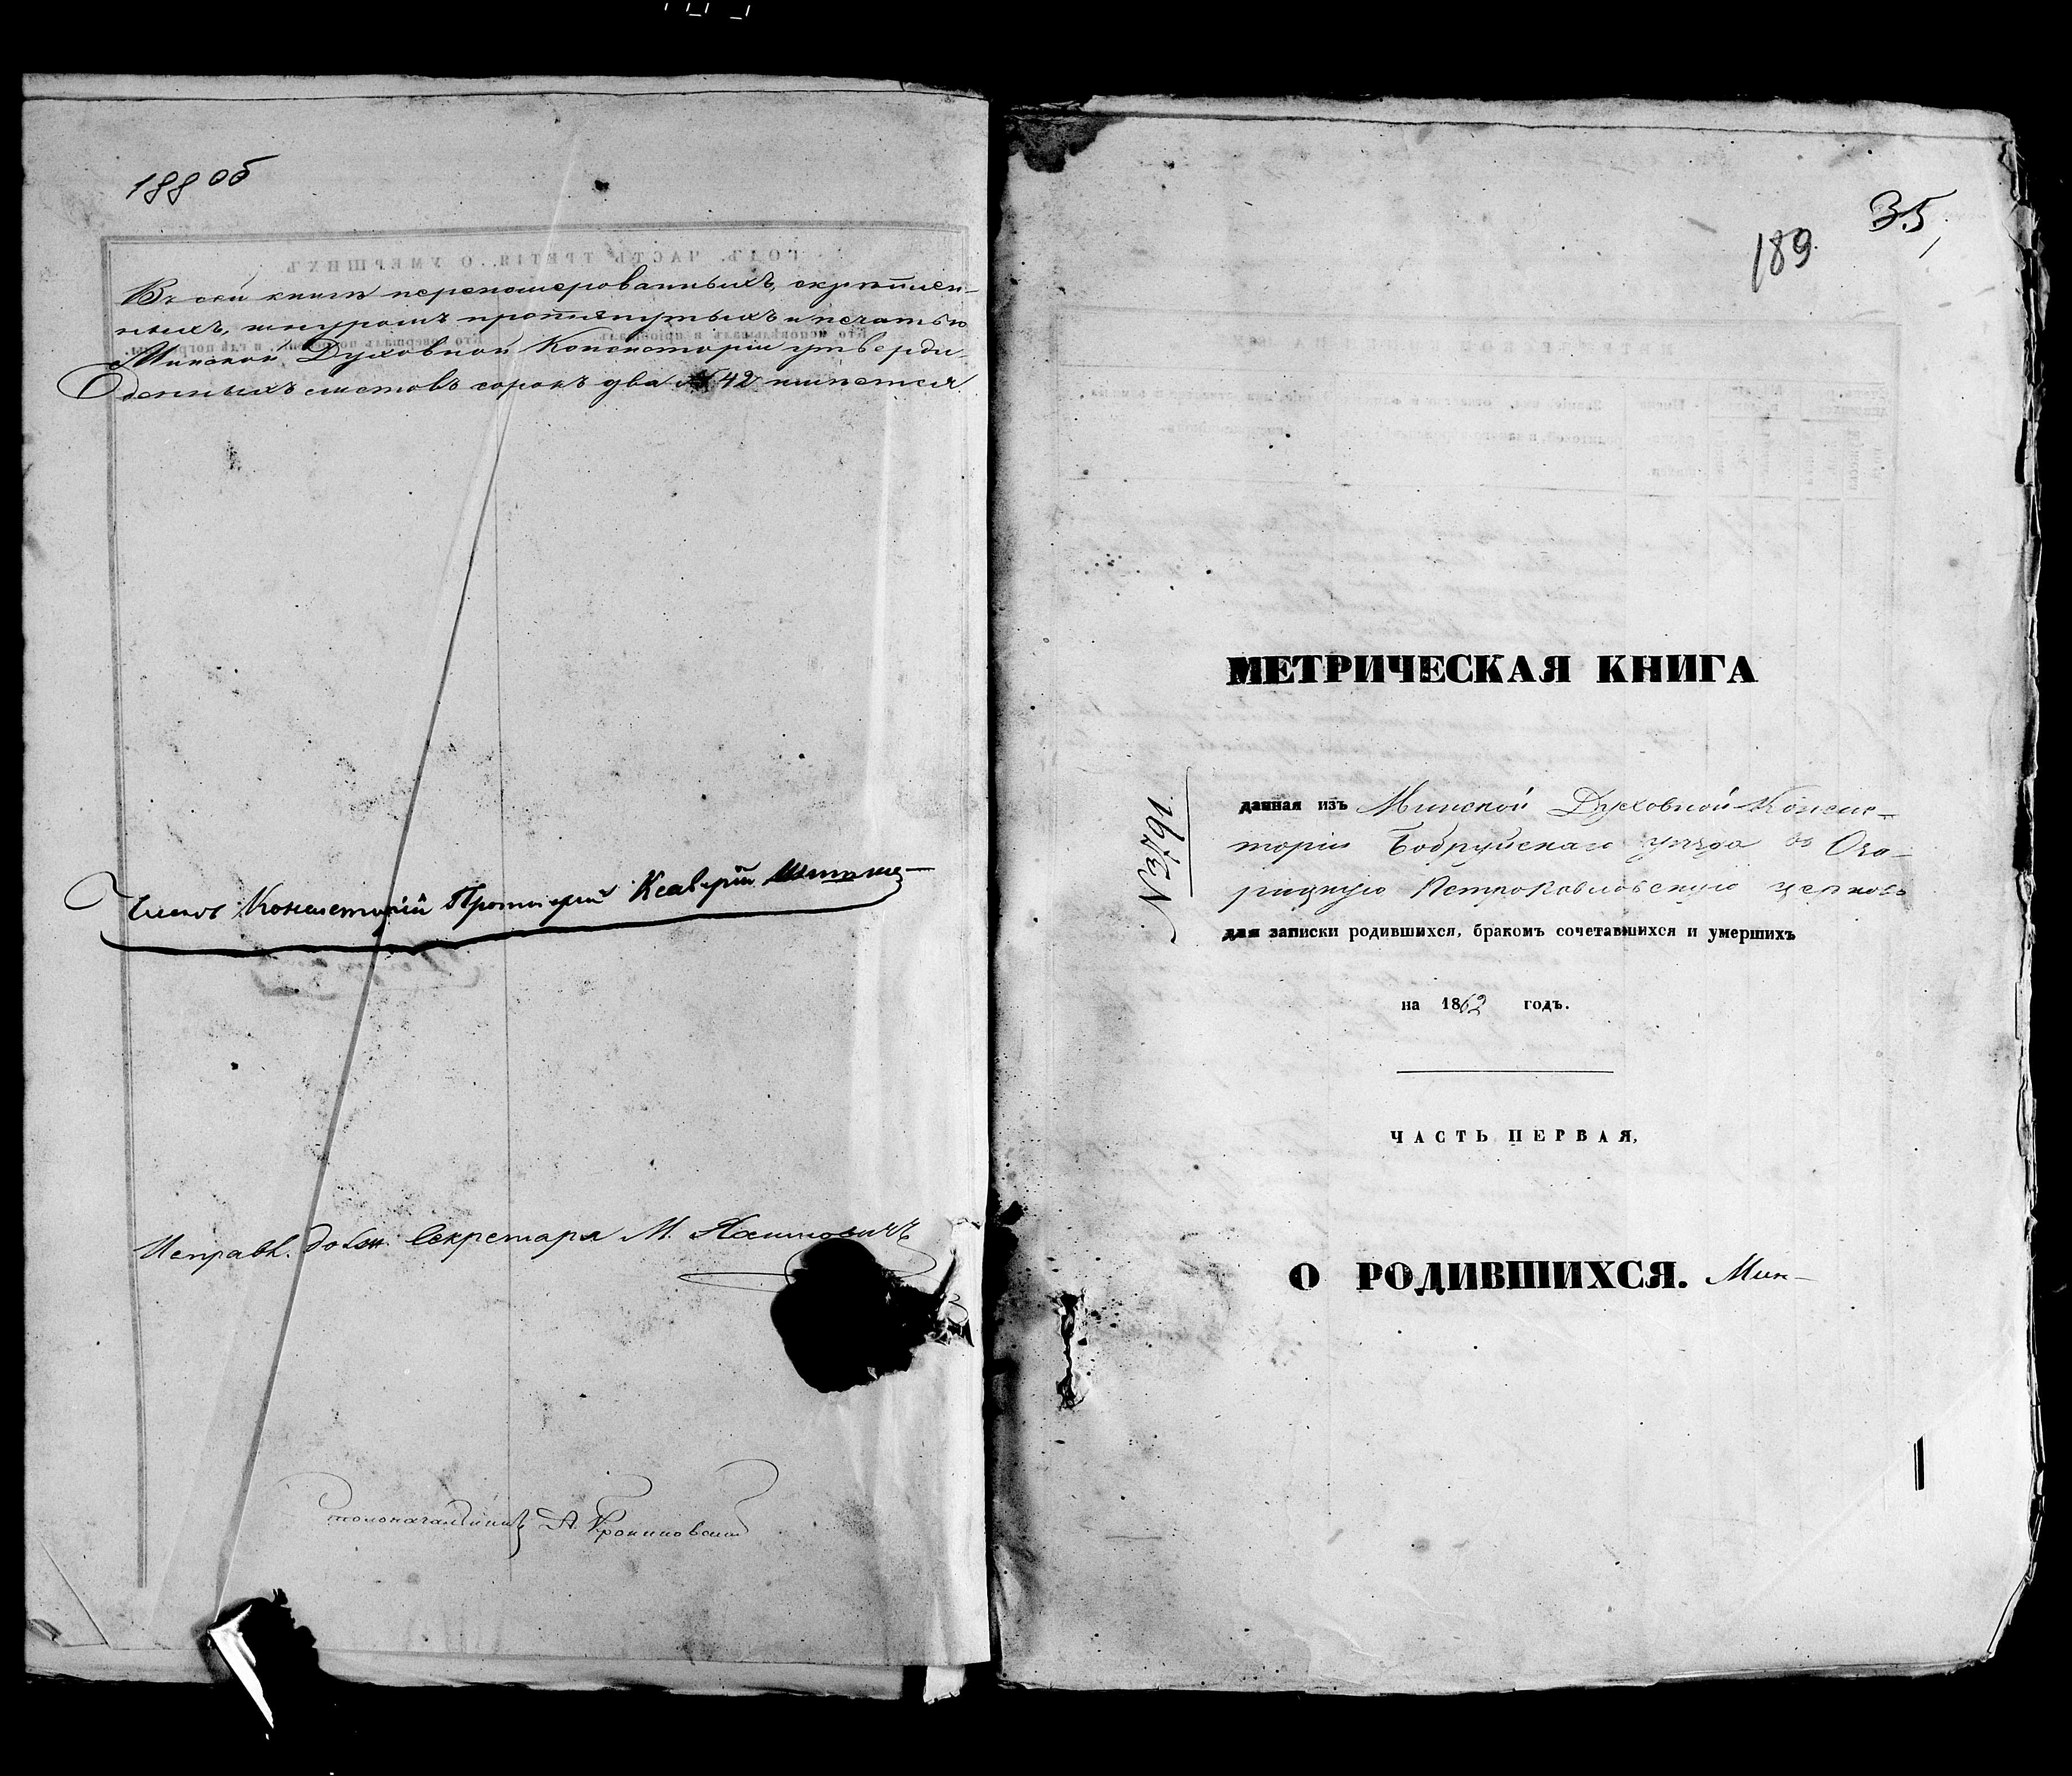 188 об
Въ сей книгѣ переномерованныхъ, скрѣплен-
ныхъ, шнуромъ протянутыхъ и печатью
Минской Духовной Консисторіи утвержд-
денныхъ листовъ сорокъ два № 42 пишется
Членъ Консисторіи Протоіерей Ксаверій
Исправл. должн. Секретаря М.
Столоначальникъ А.
35,
189
МЕТРИЧЕСКАЯ КНИГА
данная изъ Минской Духовной Консис-
торіи Бобруйскаго уѣзда въ Оза-
рицкую Петропавловскую церковь
для записки родившихся, бракомъ сочетавшихся и умершихъ
на 1862 годъ.
ЧАСТЬ ПЕРВАЯ,
О РОДИВШИХСЯ. Мин-